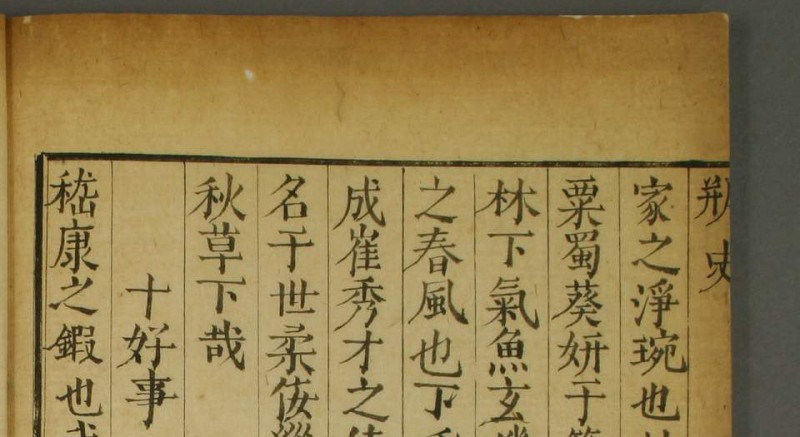 瓶史
家之淨琬也
粟蜀葵妍于
林下氣魚玄
之春風也下
成崔秀才之
名于世柔佞
秋草下哉
十好事
嵇康之鍜也